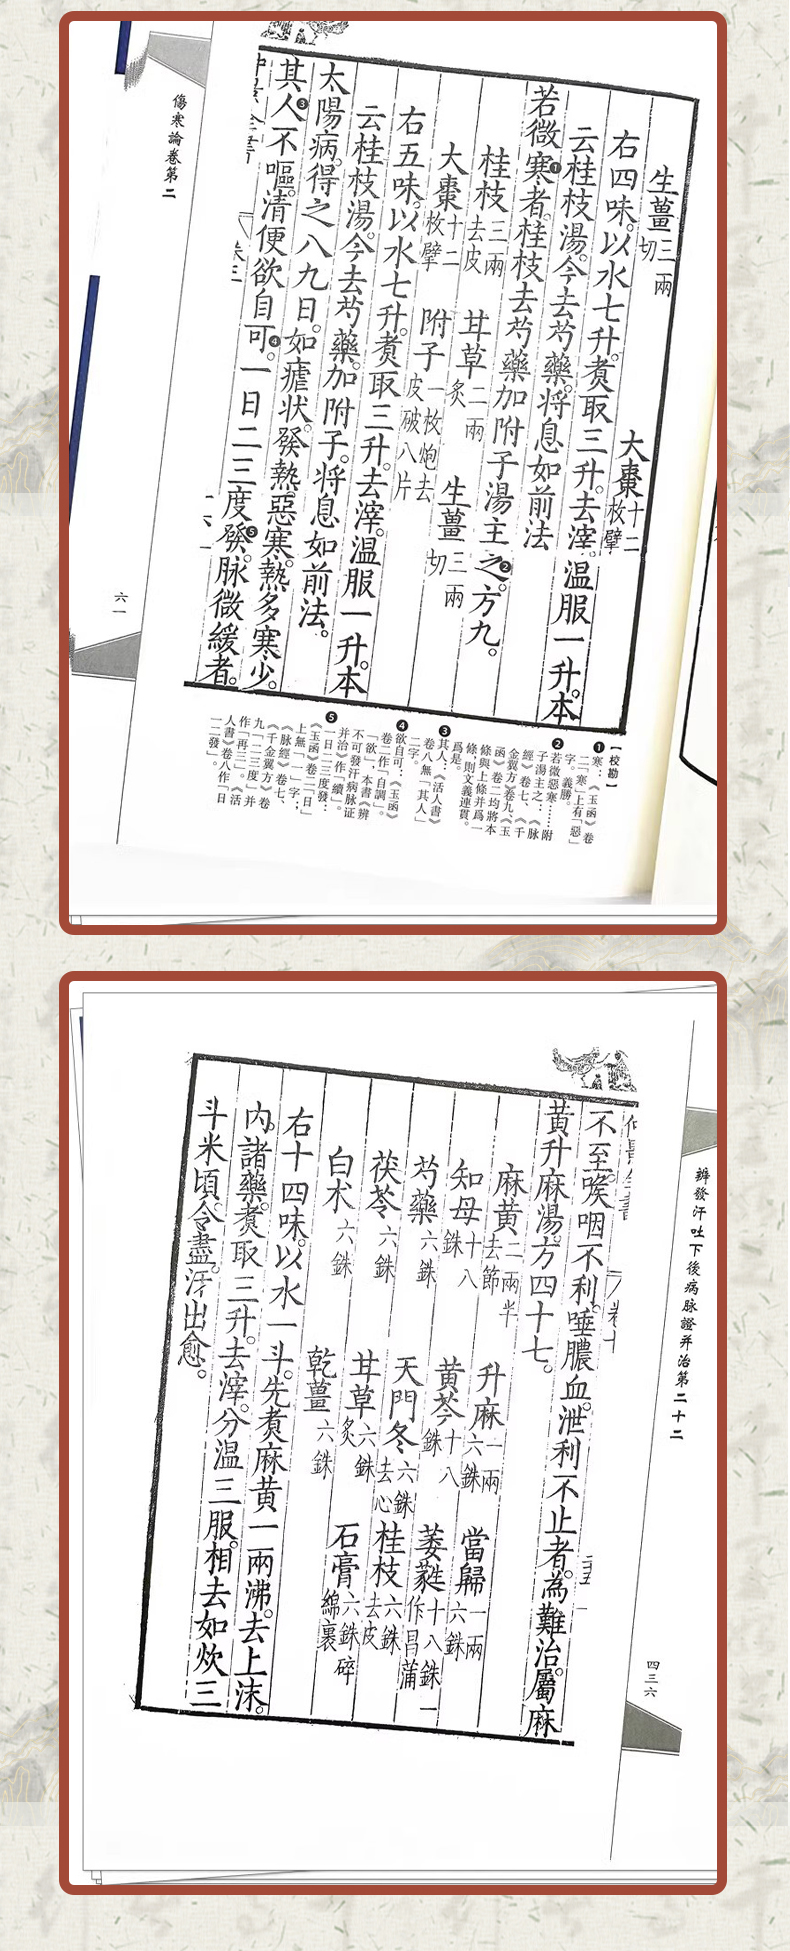 生薑三兩切　大棗十二枚擘
右四味。以水七升。煑取三升。去滓。温服一升。本
云桂枝湯。今去芍藥。將息如前法
若微寒❶者。桂枝去芍藥加附子湯主之❷。方九。
桂枝三兩去皮　甘草二兩炙　生薑三兩切
大棗十二枚擘　附子一枚炮去皮破八片
右五味。以水七升。煑取三升。去滓。温服一升。本
云桂枝湯。今去芍藥。加附子。將息如前法。
太陽病。得之八九日。如瘧状。發熱。惡寒。熱多寒少。
其人❸不嘔。清便欲自可❹。一日二三度發❺。脉微緩者。
【校勘】
❶寒：《玉函》卷
二「寒」上有「惡」
字。義勝。
❷若微惡寒……附
子湯主之：《脉
經》卷七、《千
金翼方》卷九、《玉
函》卷二均將本
條與上條并爲一
條，則文義連貫。
爲是。
❸其人：《活人書》
卷八無「其人」
二字。
❹欲自可：《玉函》
卷二作「自調」。
「欲」，本書《辨
不可發汗病脉证
并治》作「續」。
❺一日二三度發：
《玉函》卷二「日」
上無「一」字；
《脉經》卷七、
《千金翼方》卷
九「二三度」并
作「再三」。《活
人書》卷八作「日
一二發」。
傷寒論卷第二
六一
辨發汗吐下後病脉證并治第二十二
四三六
不至。喉咽不利。唾膿血。泄利不止者。為難治。屬麻
黄升麻湯。方四十七。
麻黄二兩半去節　升麻一兩六銖　當歸一兩六銖
知母十八銖　黄芩十八銖　萎蕤十八銖一作昌蒲
芍藥六銖　天門冬六銖去心　桂枝六銖去皮
茯苓六銖　甘草六銖炙　石膏六銖碎綿裹
白术六銖　乾薑六銖
右十四味。以水一斗。先煑麻黄一兩沸。去上沫。
内諸藥。煑取三升。去滓。分温三服。相去如炊三
斗米頃。令盡。汗出愈。